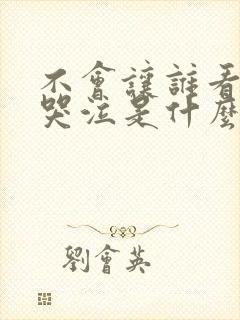 不會讓誰看
哭泣是什麼
劉會英